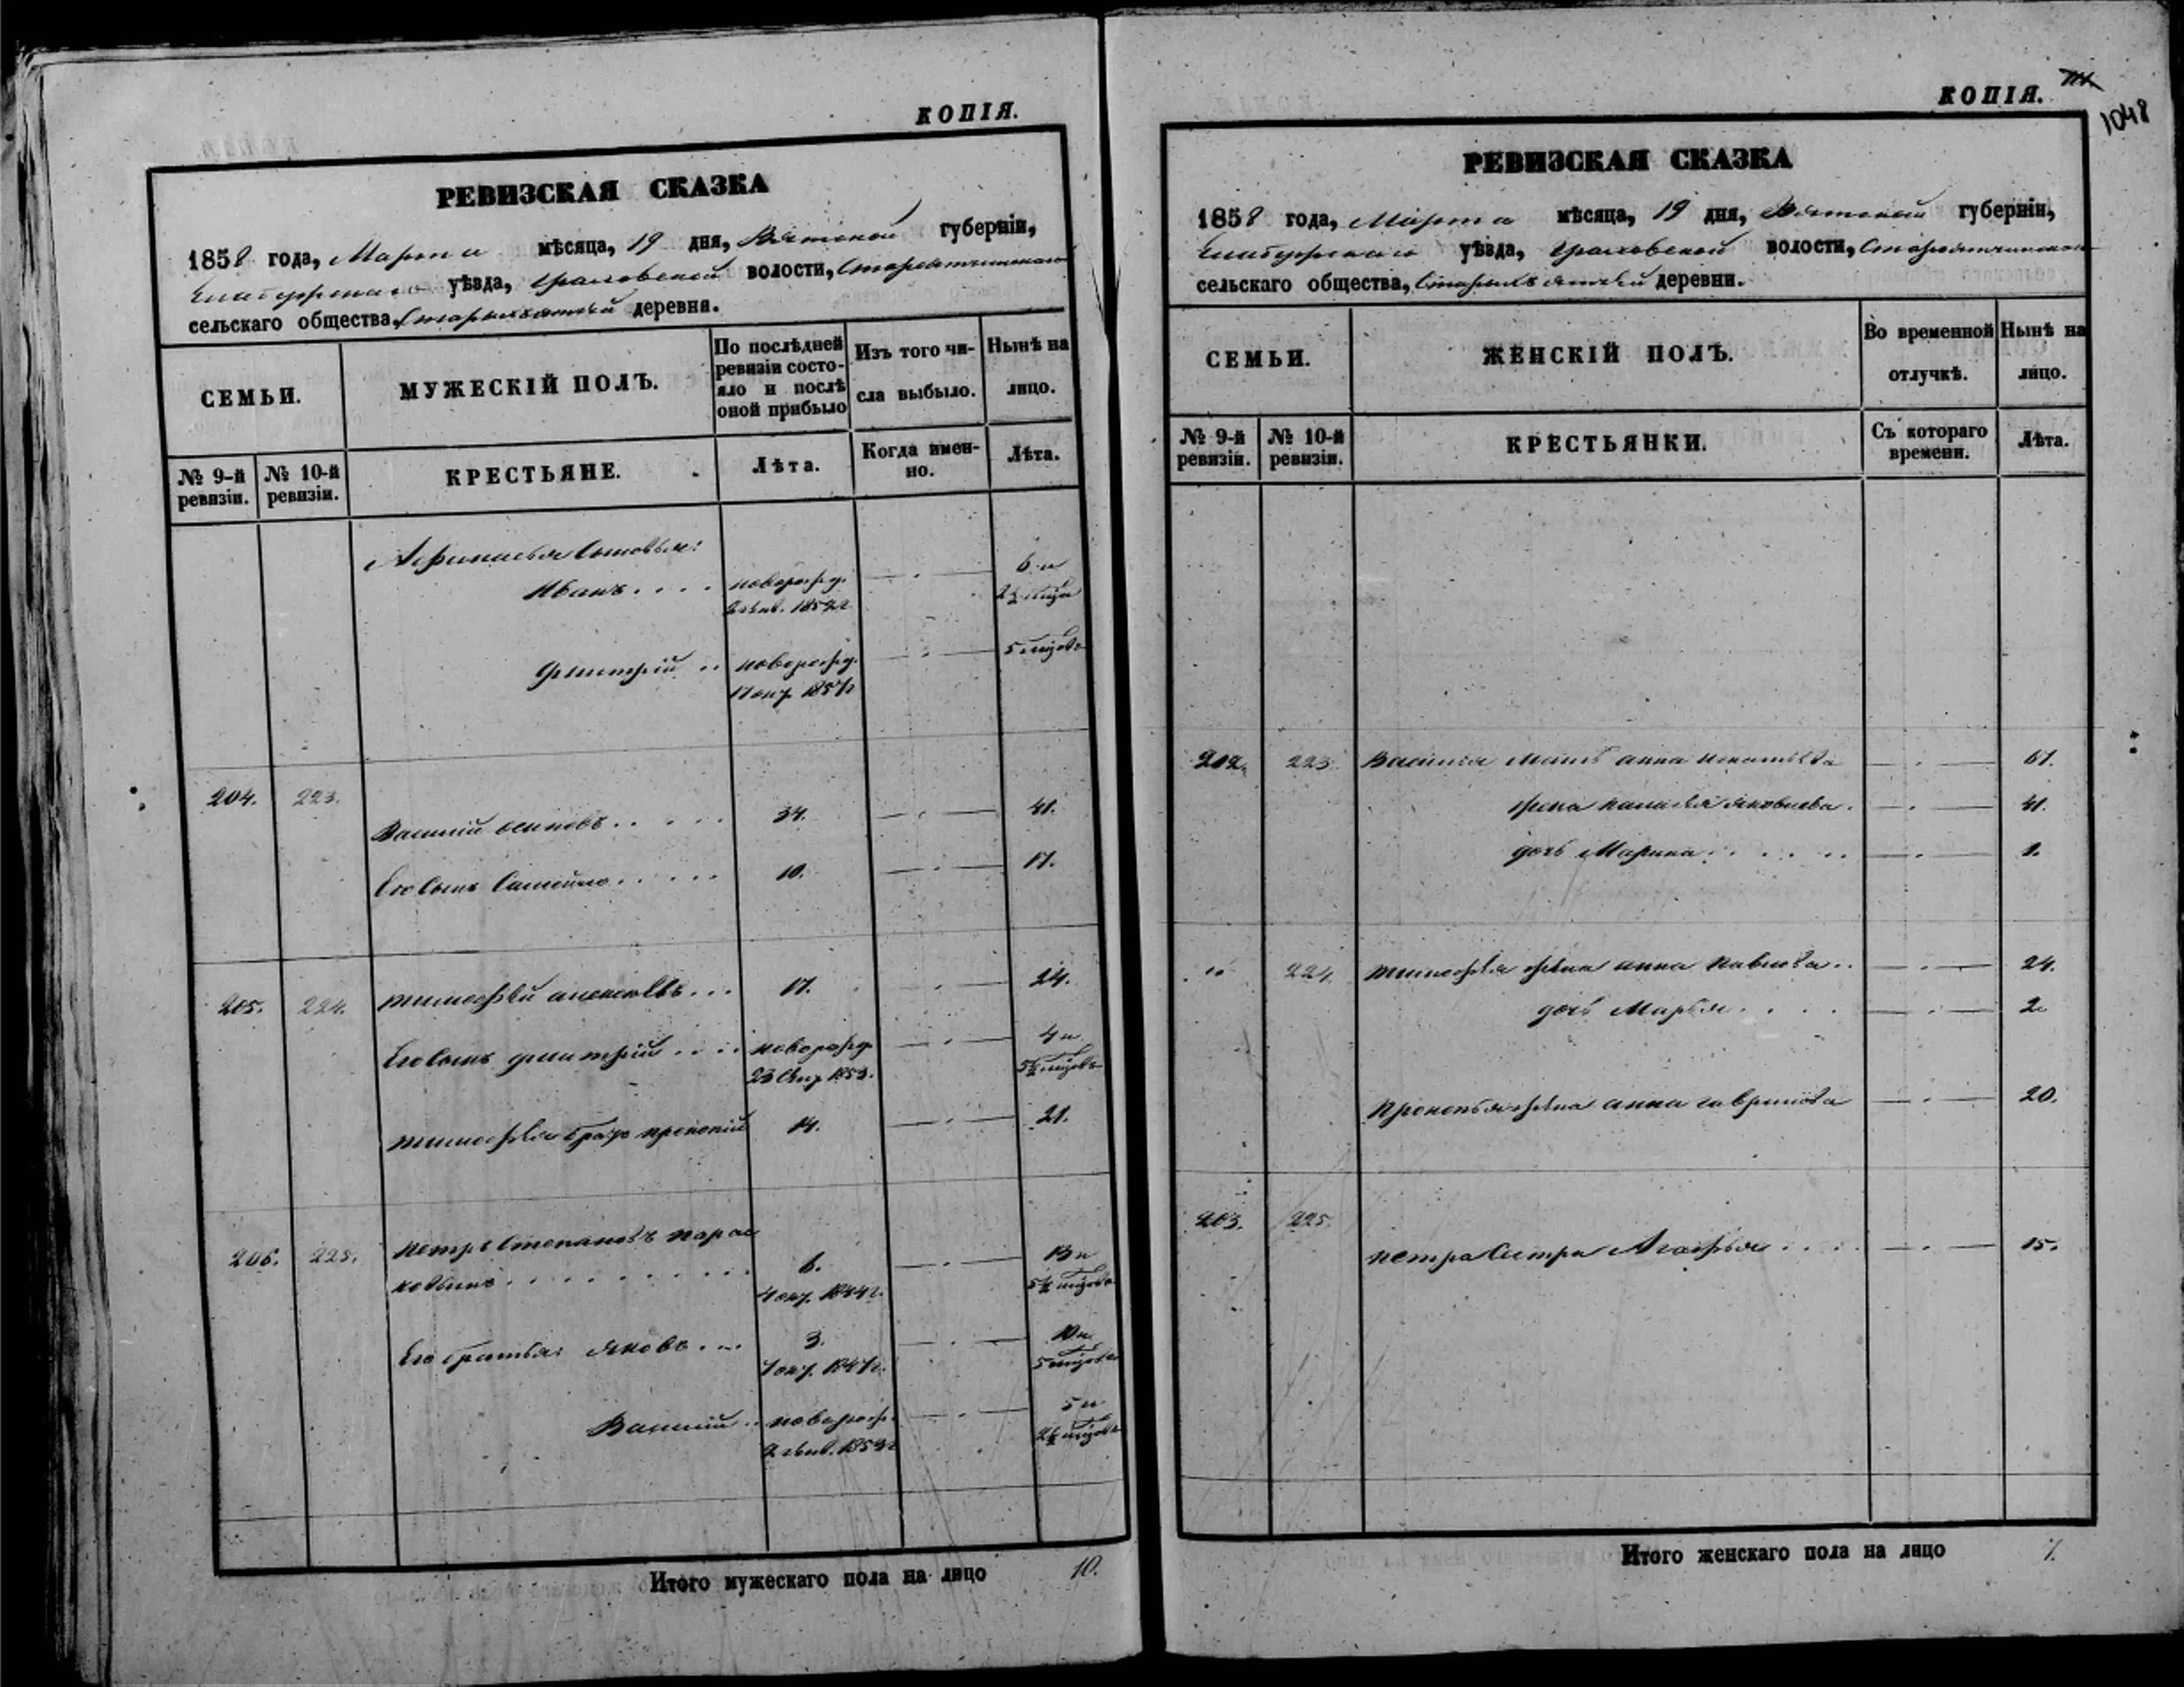 КОПІЯ.
РЕВИЗСКАЯ СКАЗКА
1858 года, Марта мѣсяца, 19 дня, Вятской губерніи,
Елабужскаго уѣзда, Граховской волости, Староятчинскаго
сельскаго общества, Старыхъ ятчей деревня.
СЕМЬИ.
МУЖЕСКІЙ ПОЛЪ.
По послѣдней
ревизіи состо-
яло и послѣ
оной прибыло
Изъ того чи-
сла выбыло.
Нынѣ на
лицо.
№ 9-й
ревизіи.
№ 10-й
ревизіи.
КРЕСТЬЯНЕ.
Лѣта.
Когда имен-
но.
Лѣта.
Афанасья сыновья:
Иванъ. . . . новорожд. 6 и
2 янв. 1852 г.
Дмитрій . . новорожд. 5 мѣцовъ
17 окт. 1857 г.
204. 223.
Василій осиповъ . . . . . 34. 41.
Его сынъ Самойло . . . . . 10. 17.
205. 224. тимофей алексѣевъ . . . 17. 24.
Его сынъ дмитрій . . . . новорожд. 4 и
23 Сент. 1853. 5½ мѣцовъ
тимофея братъ прокопій 14. 21.
206. 225. петръ степановъ
6. 13 и
4 окт. 1844 г. 5½ мѣцовъ
Его братья: яковъ . . . 3. 10 и
7 окт. 1847 г. 5 мѣцовъ
Василій . . новорож. 5 и
2 янв. 1853 г. 2½ мѣцовъ
Итого мужескаго пола на лицо 10.
КОПІЯ.
1048
РЕВИЗСКАЯ СКАЗКА
1858 года, Марта мѣсяца, 19 дня, Вятской губерніи,
Елабужскаго уѣзда, Граховской волости, Староятчинскаго
сельскаго общества, Старыхъ ятчей деревни.
СЕМЬИ.
ЖЕНСКІЙ ПОЛЪ.
Во временной
отлучкѣ.
Нынѣ на
лицо.
№ 9-й
ревизіи.
№ 10-й
ревизіи.
КРЕСТЬЯНКИ.
Съ котораго
времени.
Лѣта.
202. 223. Василья мать анна 61.
жена яковлева . 41.
дочь Марина . . . . . 1.
" 224. тимофея жена анна павлова . . 24.
дочь Марья . . . . 2.
Прокопья жена анна гаврилова 20.
203. 225.
петра сестра Агафья . . . . 15.
Итого женскаго пола на лицо 7.